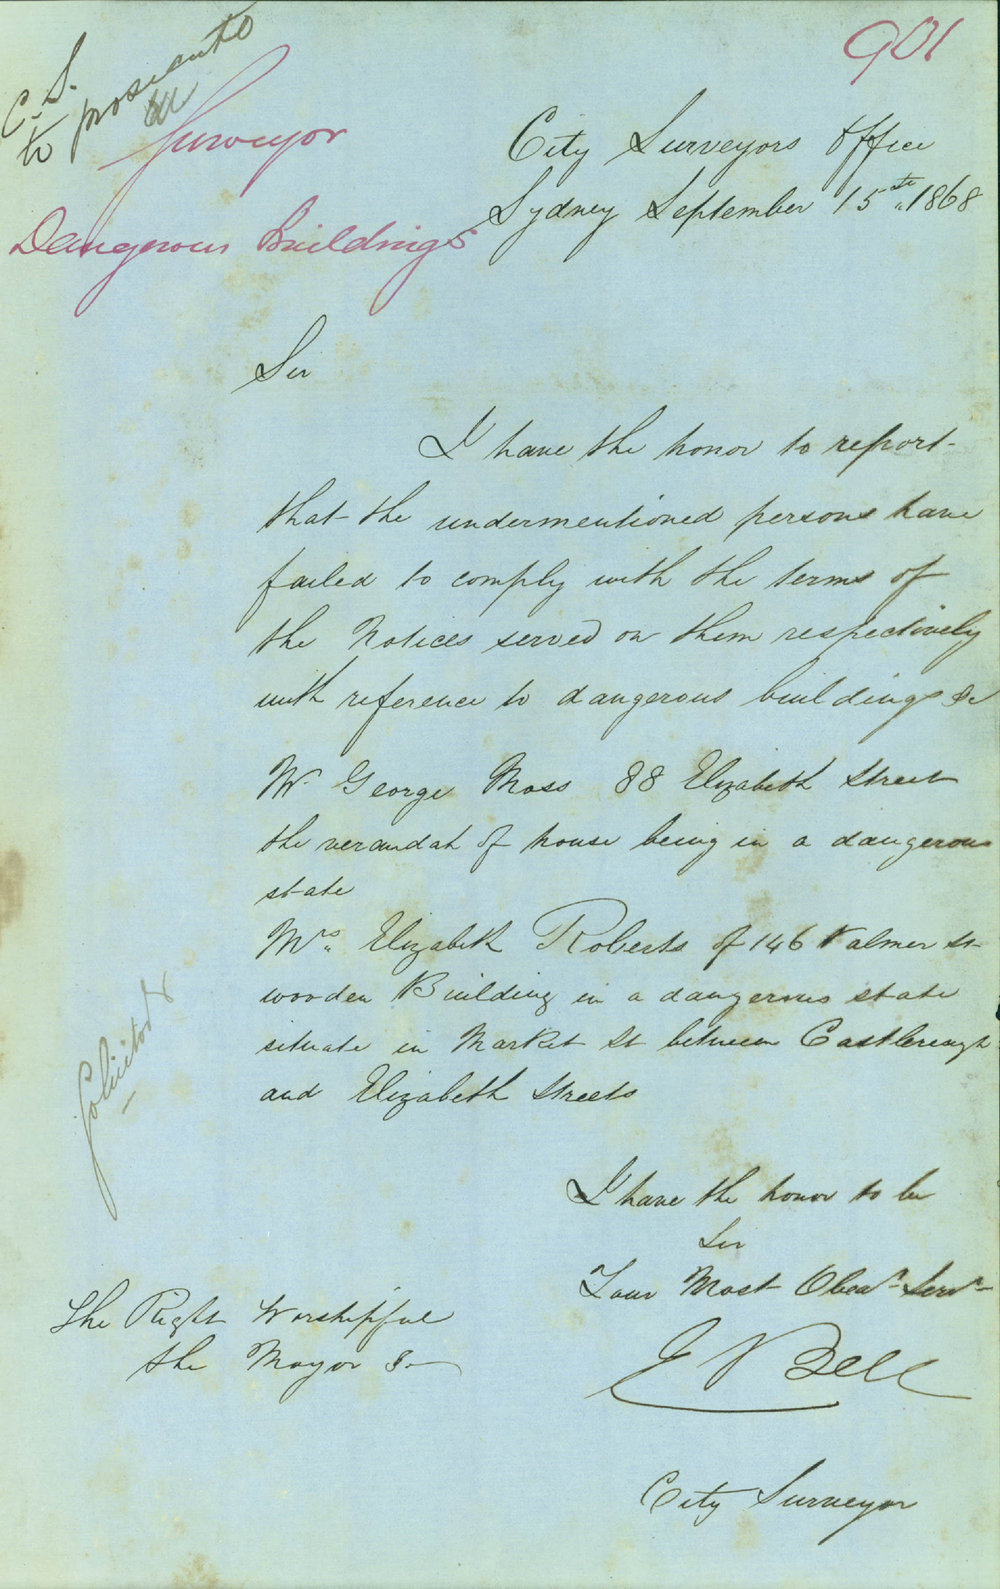 901
C. S.
to prosecute
Surveyor
Dangerous Buildings
City Surveyors Office
Sydney September 15th 1868
Sir
I have the honor to report
that the undermentioned persons have
failed to comply with the terms of
the Notices served on them respectively
with reference to dangerous buildings &c
Mr George Moss 88 Elizabeth Street
the verandah of house being in a dangerous
state
Mrs Elizabeth Roberts of 146 Palmer St
wooden Building in a dangerous state
situate in Market St between Castlereagh
and Elizabeth Streets
Solicitor
I have the honor to be
Sir
Your Most Obedt Servt
The Right Worshipful
the Mayor &c
E Bell
City Surveyor